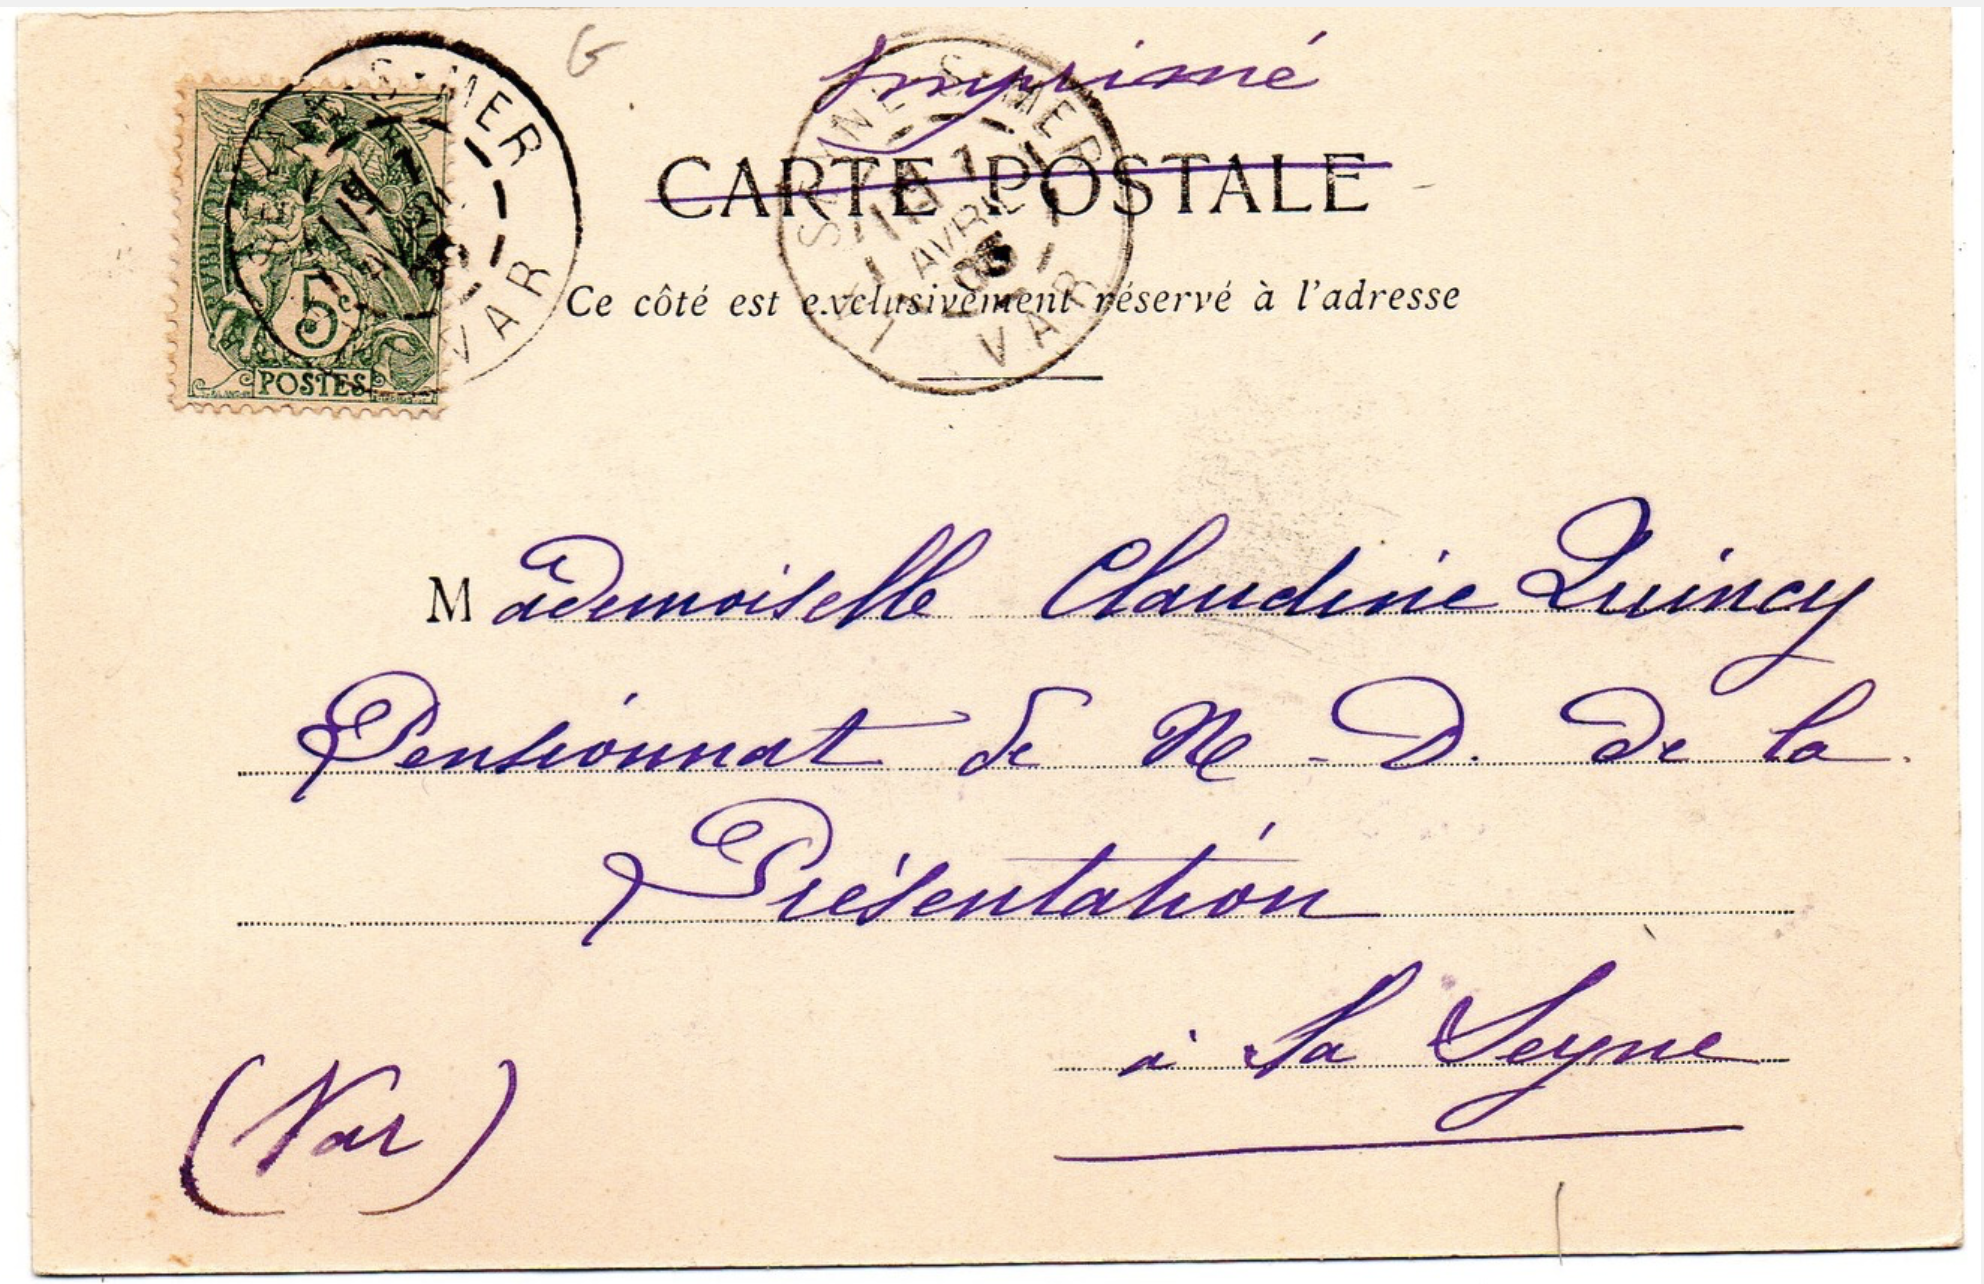 G
Imprimé
CARTE POSTALE
Ce côté est exclusivement réservé à l'adresse
RÉPUBLIQUE FRANÇAISE
5c
POSTES
S-MER
VAR
SEYNE-S-MER
1
AVRIL
VAR
Mademoiselle Claudine Quincy
Pensionnat de N.-D. de la
Présentation
à La Seyne
(Var)